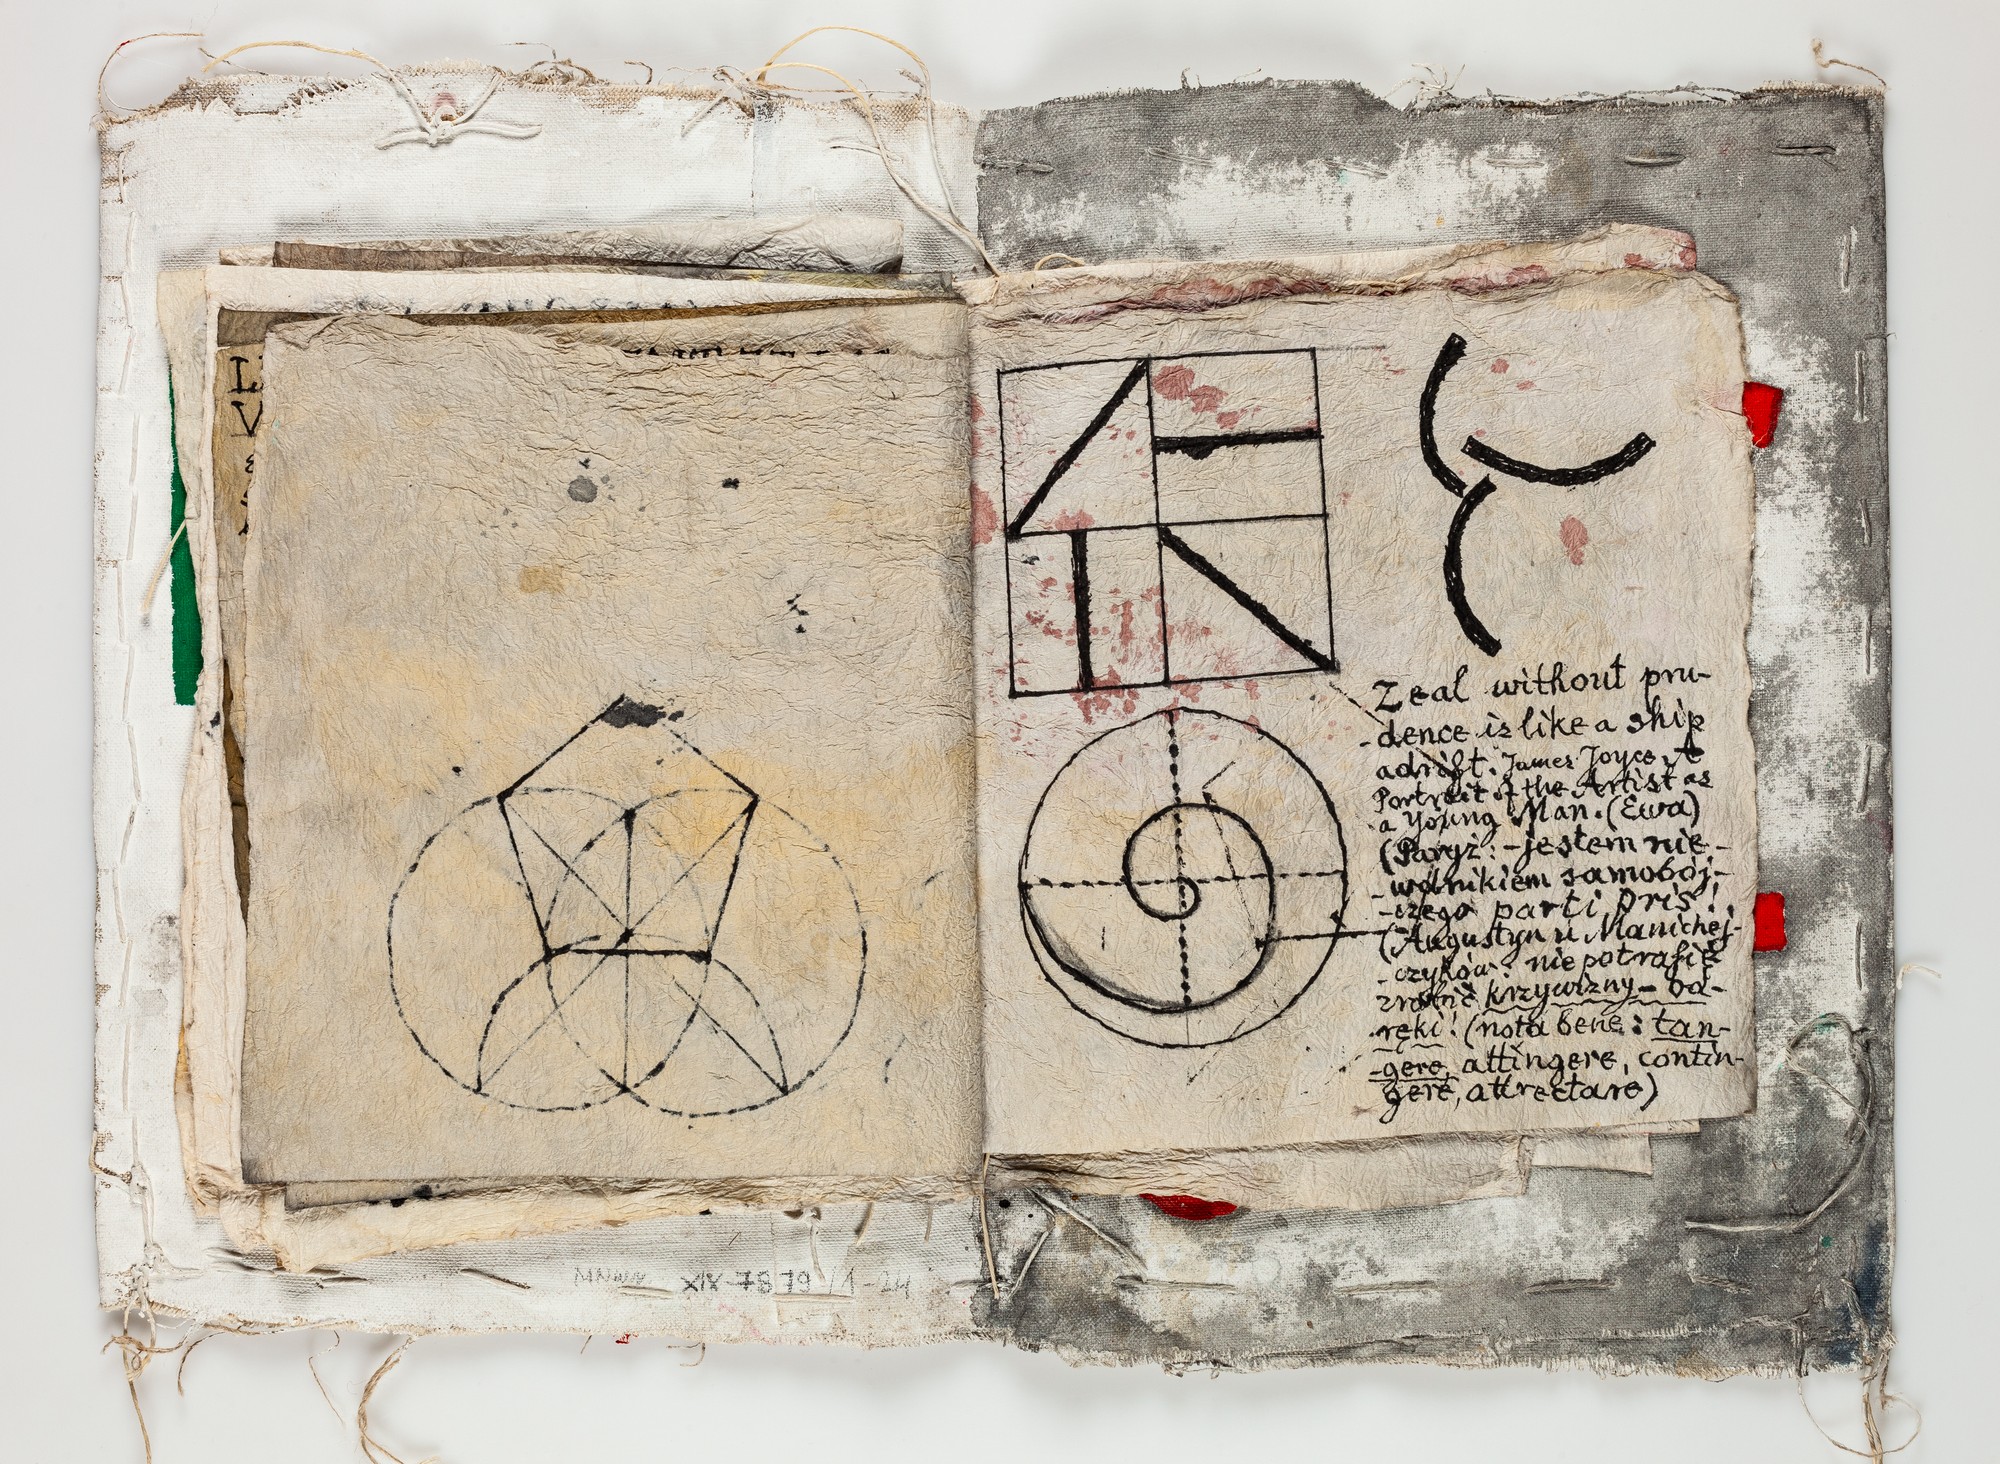 L
V
Zeal without pru-
-dence is like a ship
adrift. James Joyce. A
Portrait of the Artist as
a Young Man. (Ewa)
(Paryż: - jestem nie-
-wolnikiem samobój-
-czego parti pris!
(Augustyn u Manichej-
-czyków: nie potrafię
zrobić krzywizny - ba-
-ręki! (nota bene: tan-
-gere, attingere, contin-
gere, attrectare)
MNWr XIX-7879/1-24